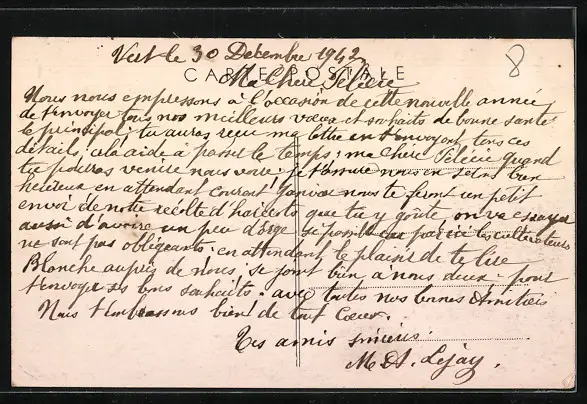 Vert le 30 Decembre 1942
8
CARTE POSTALE
Ma Chère Félicie
Nous nous empressons à l'occasion de cette nouvelle année
de t'envoyer tous nos meilleurs vœux et souhaits de bonne santé
le principal; tu auras reçu ma lettre en t'envoyant tous ces
détails, cela aide à passer le temps; ma Chère Félicie quand
tu pourras venir nous voir; nous en serons bien
heureux en attendant courant Janvier nous te feront un petit
envoi de notre récolte d'haricots que tu y goûte, on va essayer
aussi d'avoir un peu d'orge si possible car par ici les cultivateurs
ne sont pas obligeants. en attendant le plaisir de te lire
Blanche auprès de nous, se joint bien à nous deux. pour
t'envoyer ses bons souhaits. avec toutes nos bonnes Amitiés
Nous t'embrassons bien de tout Cœur.
Tes amis sincères.
M A. Lejay.